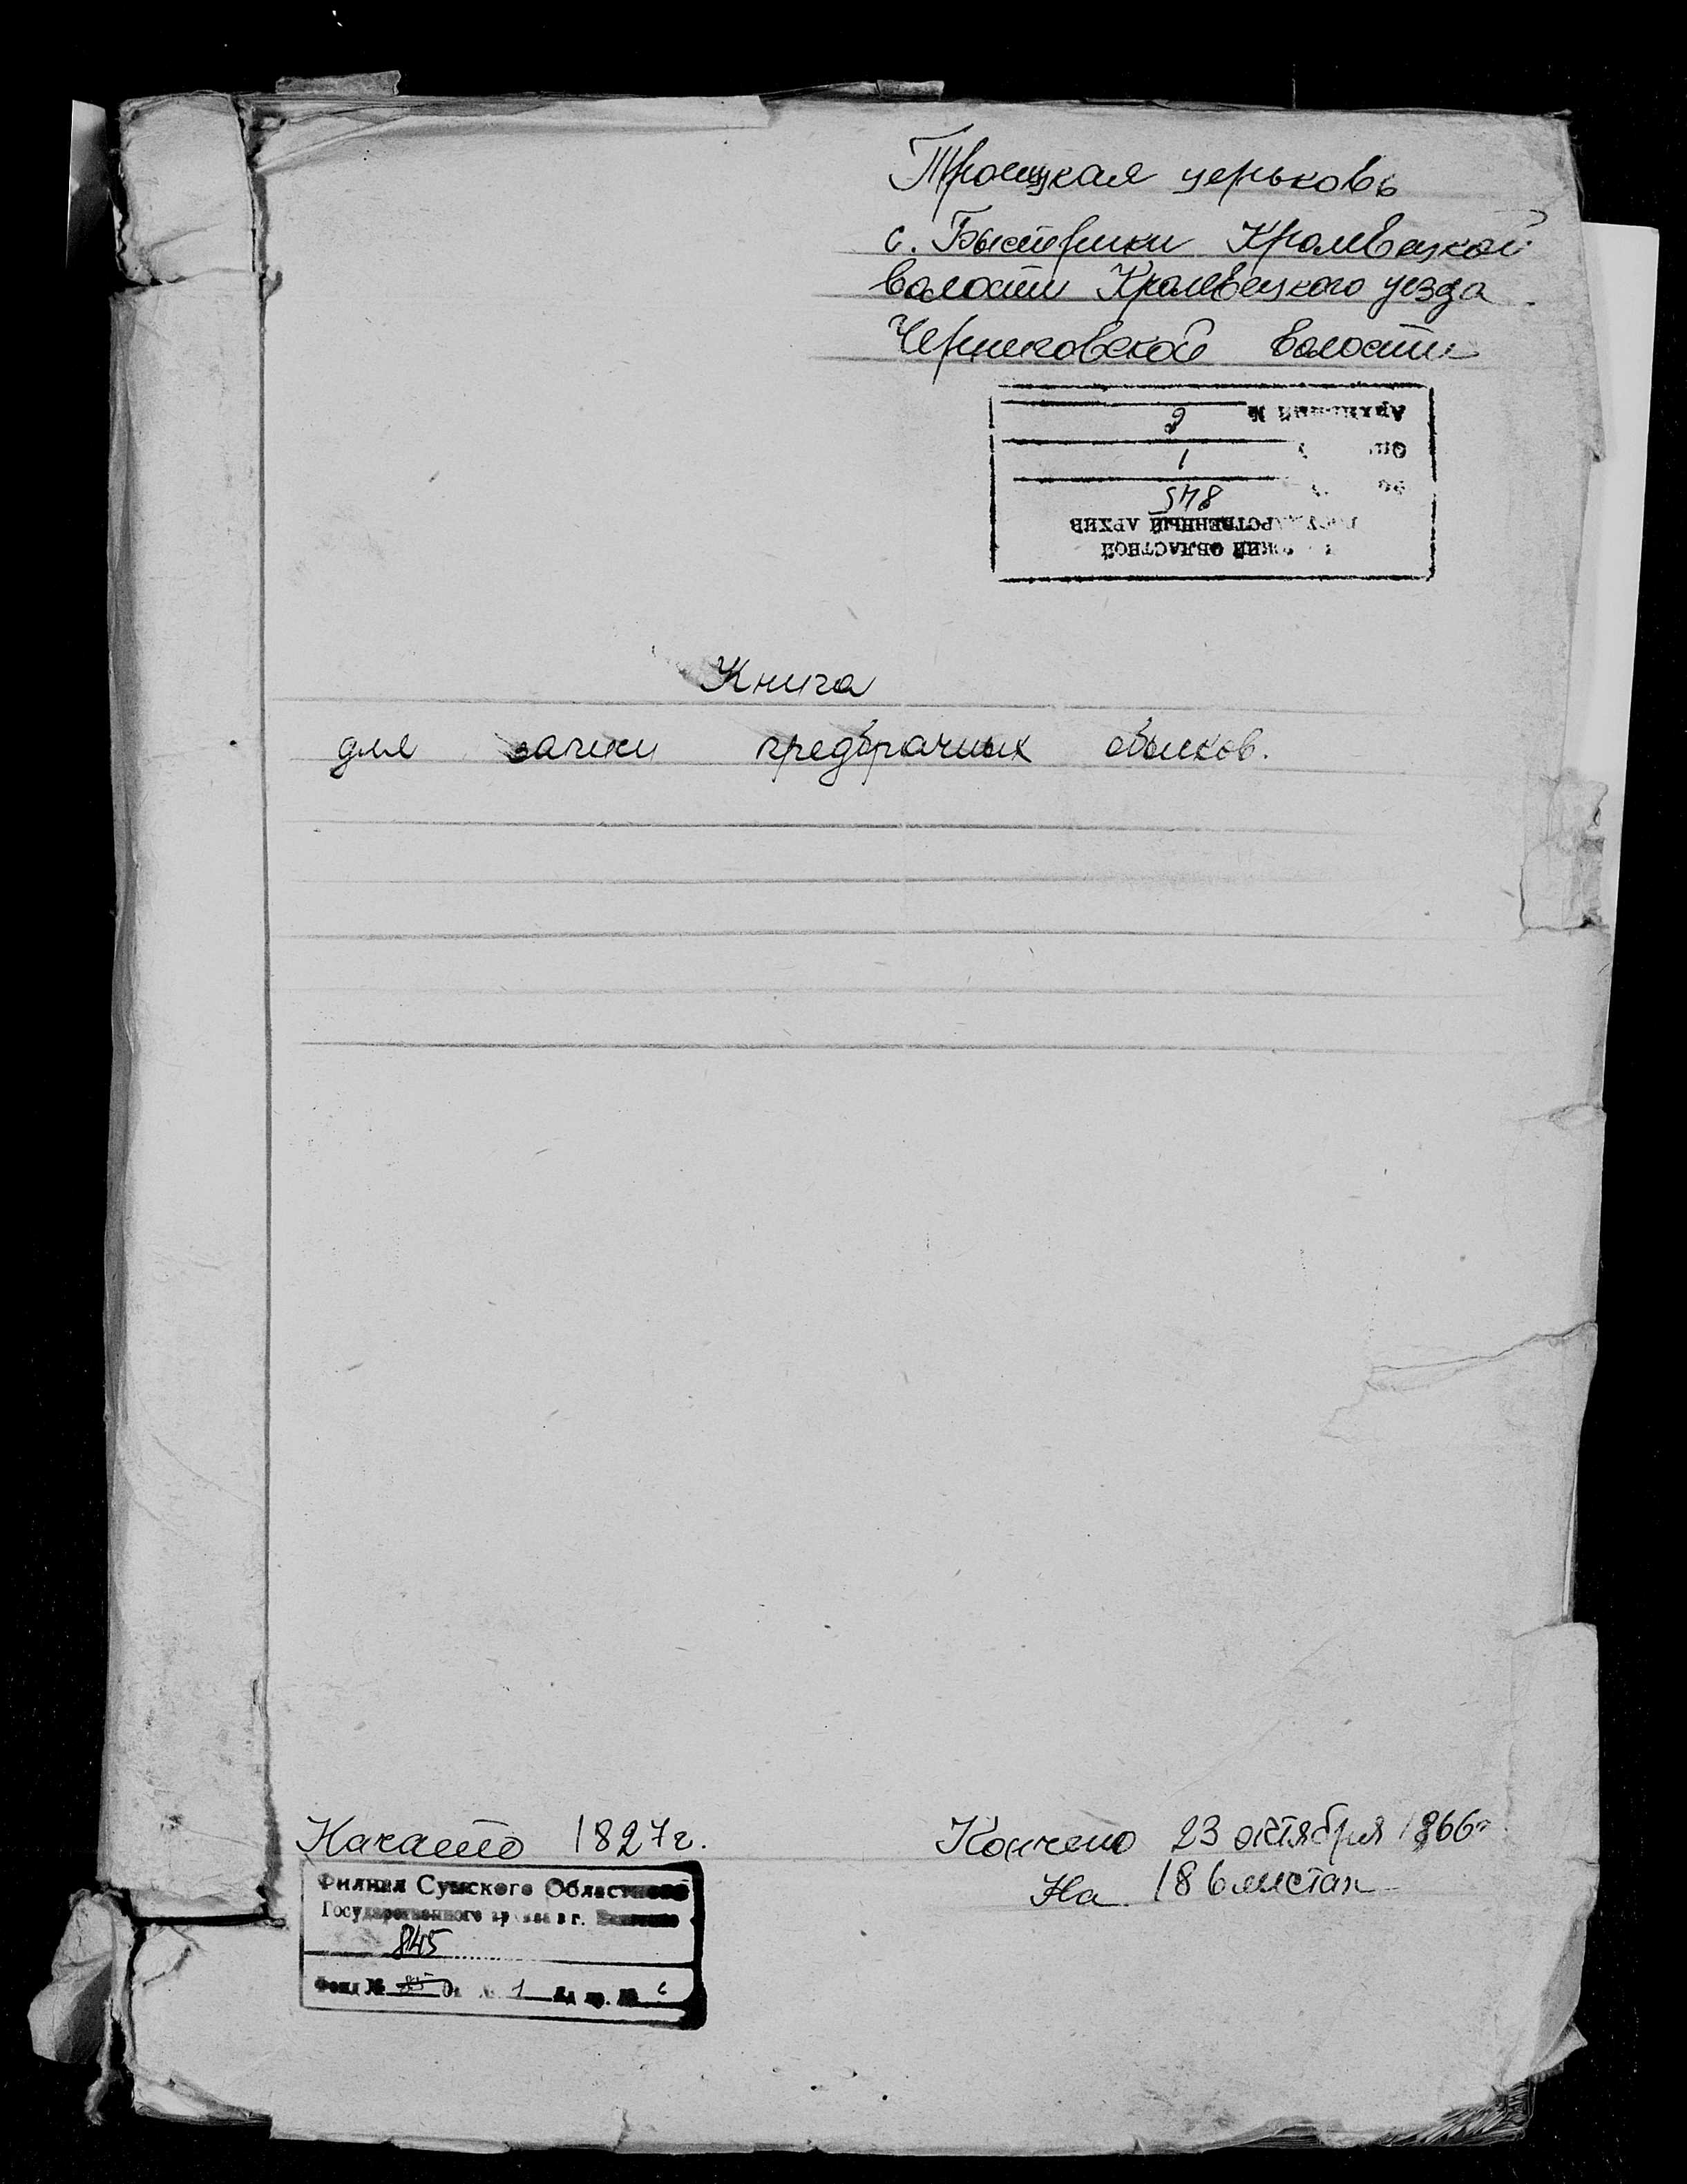 Троицкая церьковь
с. Быстрики Кролевецкой
волости Кролевецкого уезда
Черниговской волости
Архивный №
6
1
845
АРХИВ
ОБЛАСТНОЙ
Книга
для записи предбрачных обысков.
Начато 1827г.
Кончено 23 октября 1866г
На 186 листах
Филиал Сумского Областного
Государственного архива в г.
845
Фонд № 85 Оп № 1 Ед хр. № 6